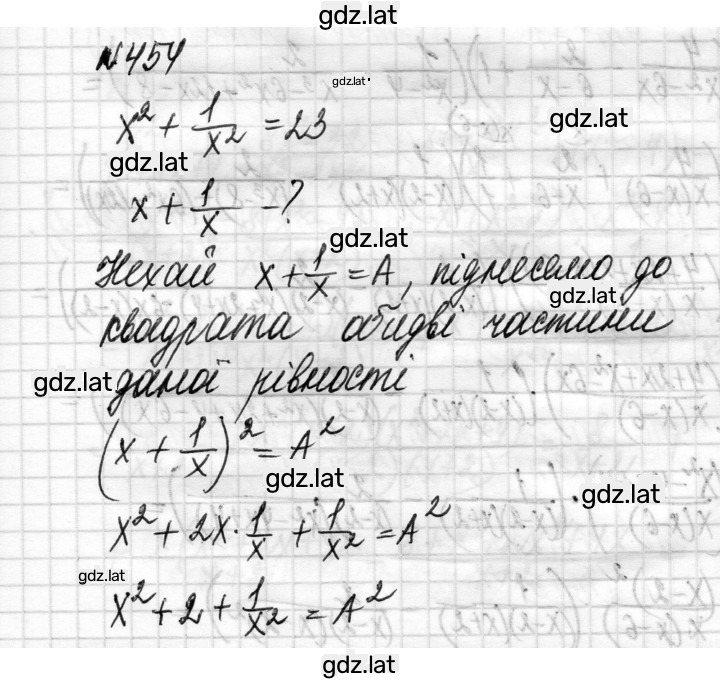 gdz.lat
№454
gdz.lat
x² + 1/x² = 23
gdz.lat
gdz.lat
x + 1/x - ?
gdz.lat
Нехай x + 1/x = A, піднесемо до
gdz.lat
квадрата обидві частини
gdz.lat
даної рівності
(x + 1/x)² = A²
gdz.lat
gdz.lat
x² + 2x · 1/x + 1/x² = A²
gdz.lat
x² + 2 + 1/x² = A²
gdz.lat